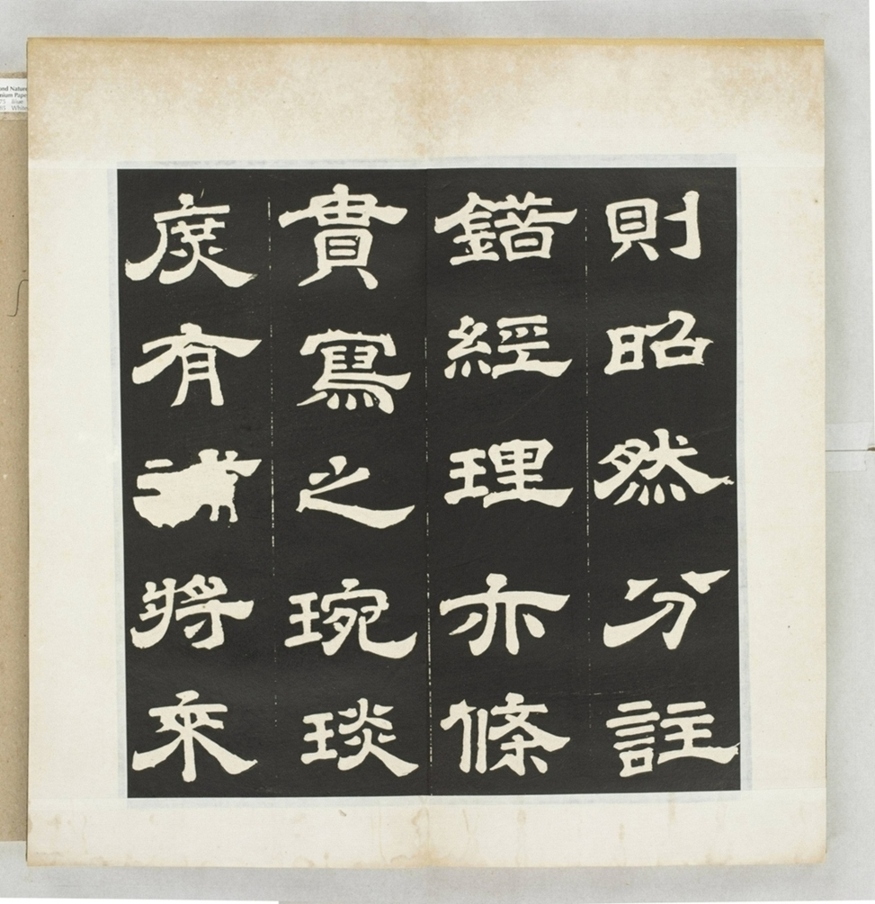 則昭然分註
錯經理亦條
貫寫之琬琰
庶有將來